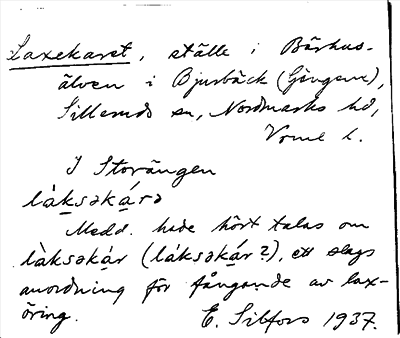 Laxekaret, ställe i Bärhus-
älven i Bjurbäck (Gängene),
Silleruds sn, Nordmarks hd,
Vrml l.
I Storängen
làksəkárə
Medd. hade hört talas om
làksəkár (láksəkár?), ett slags
anordning för fångande av lax-
öring.
E. Sibfors 1937.